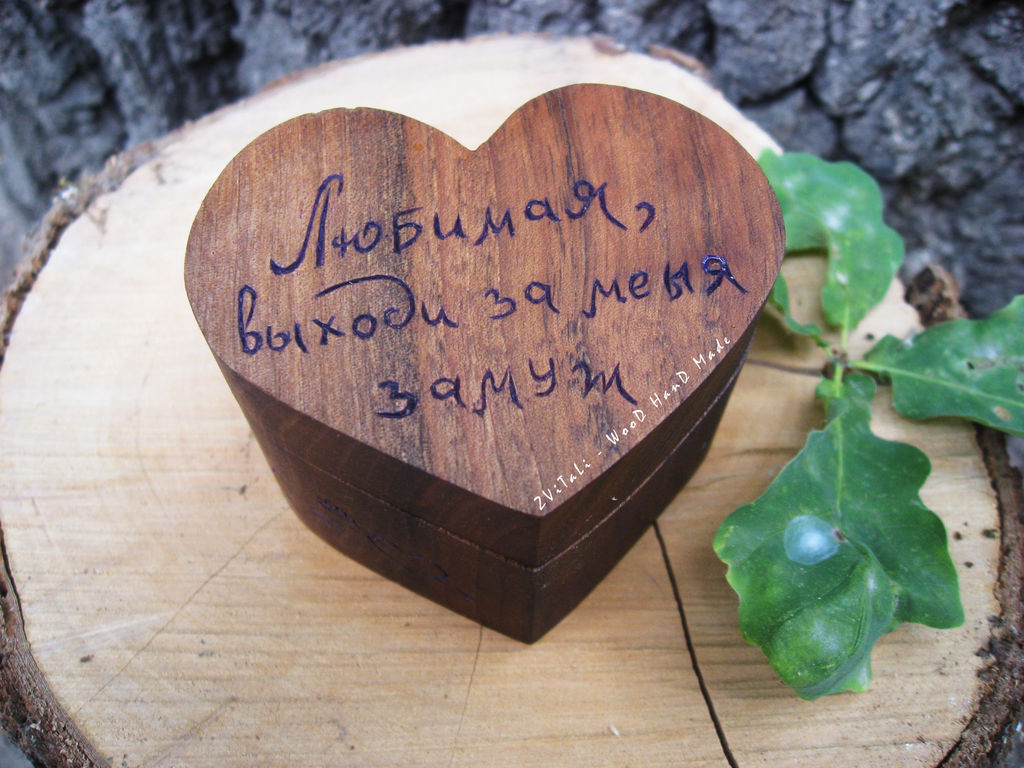 Любимая,
выходи за меня
замуж
2ViTaLi - WooD HanD Made